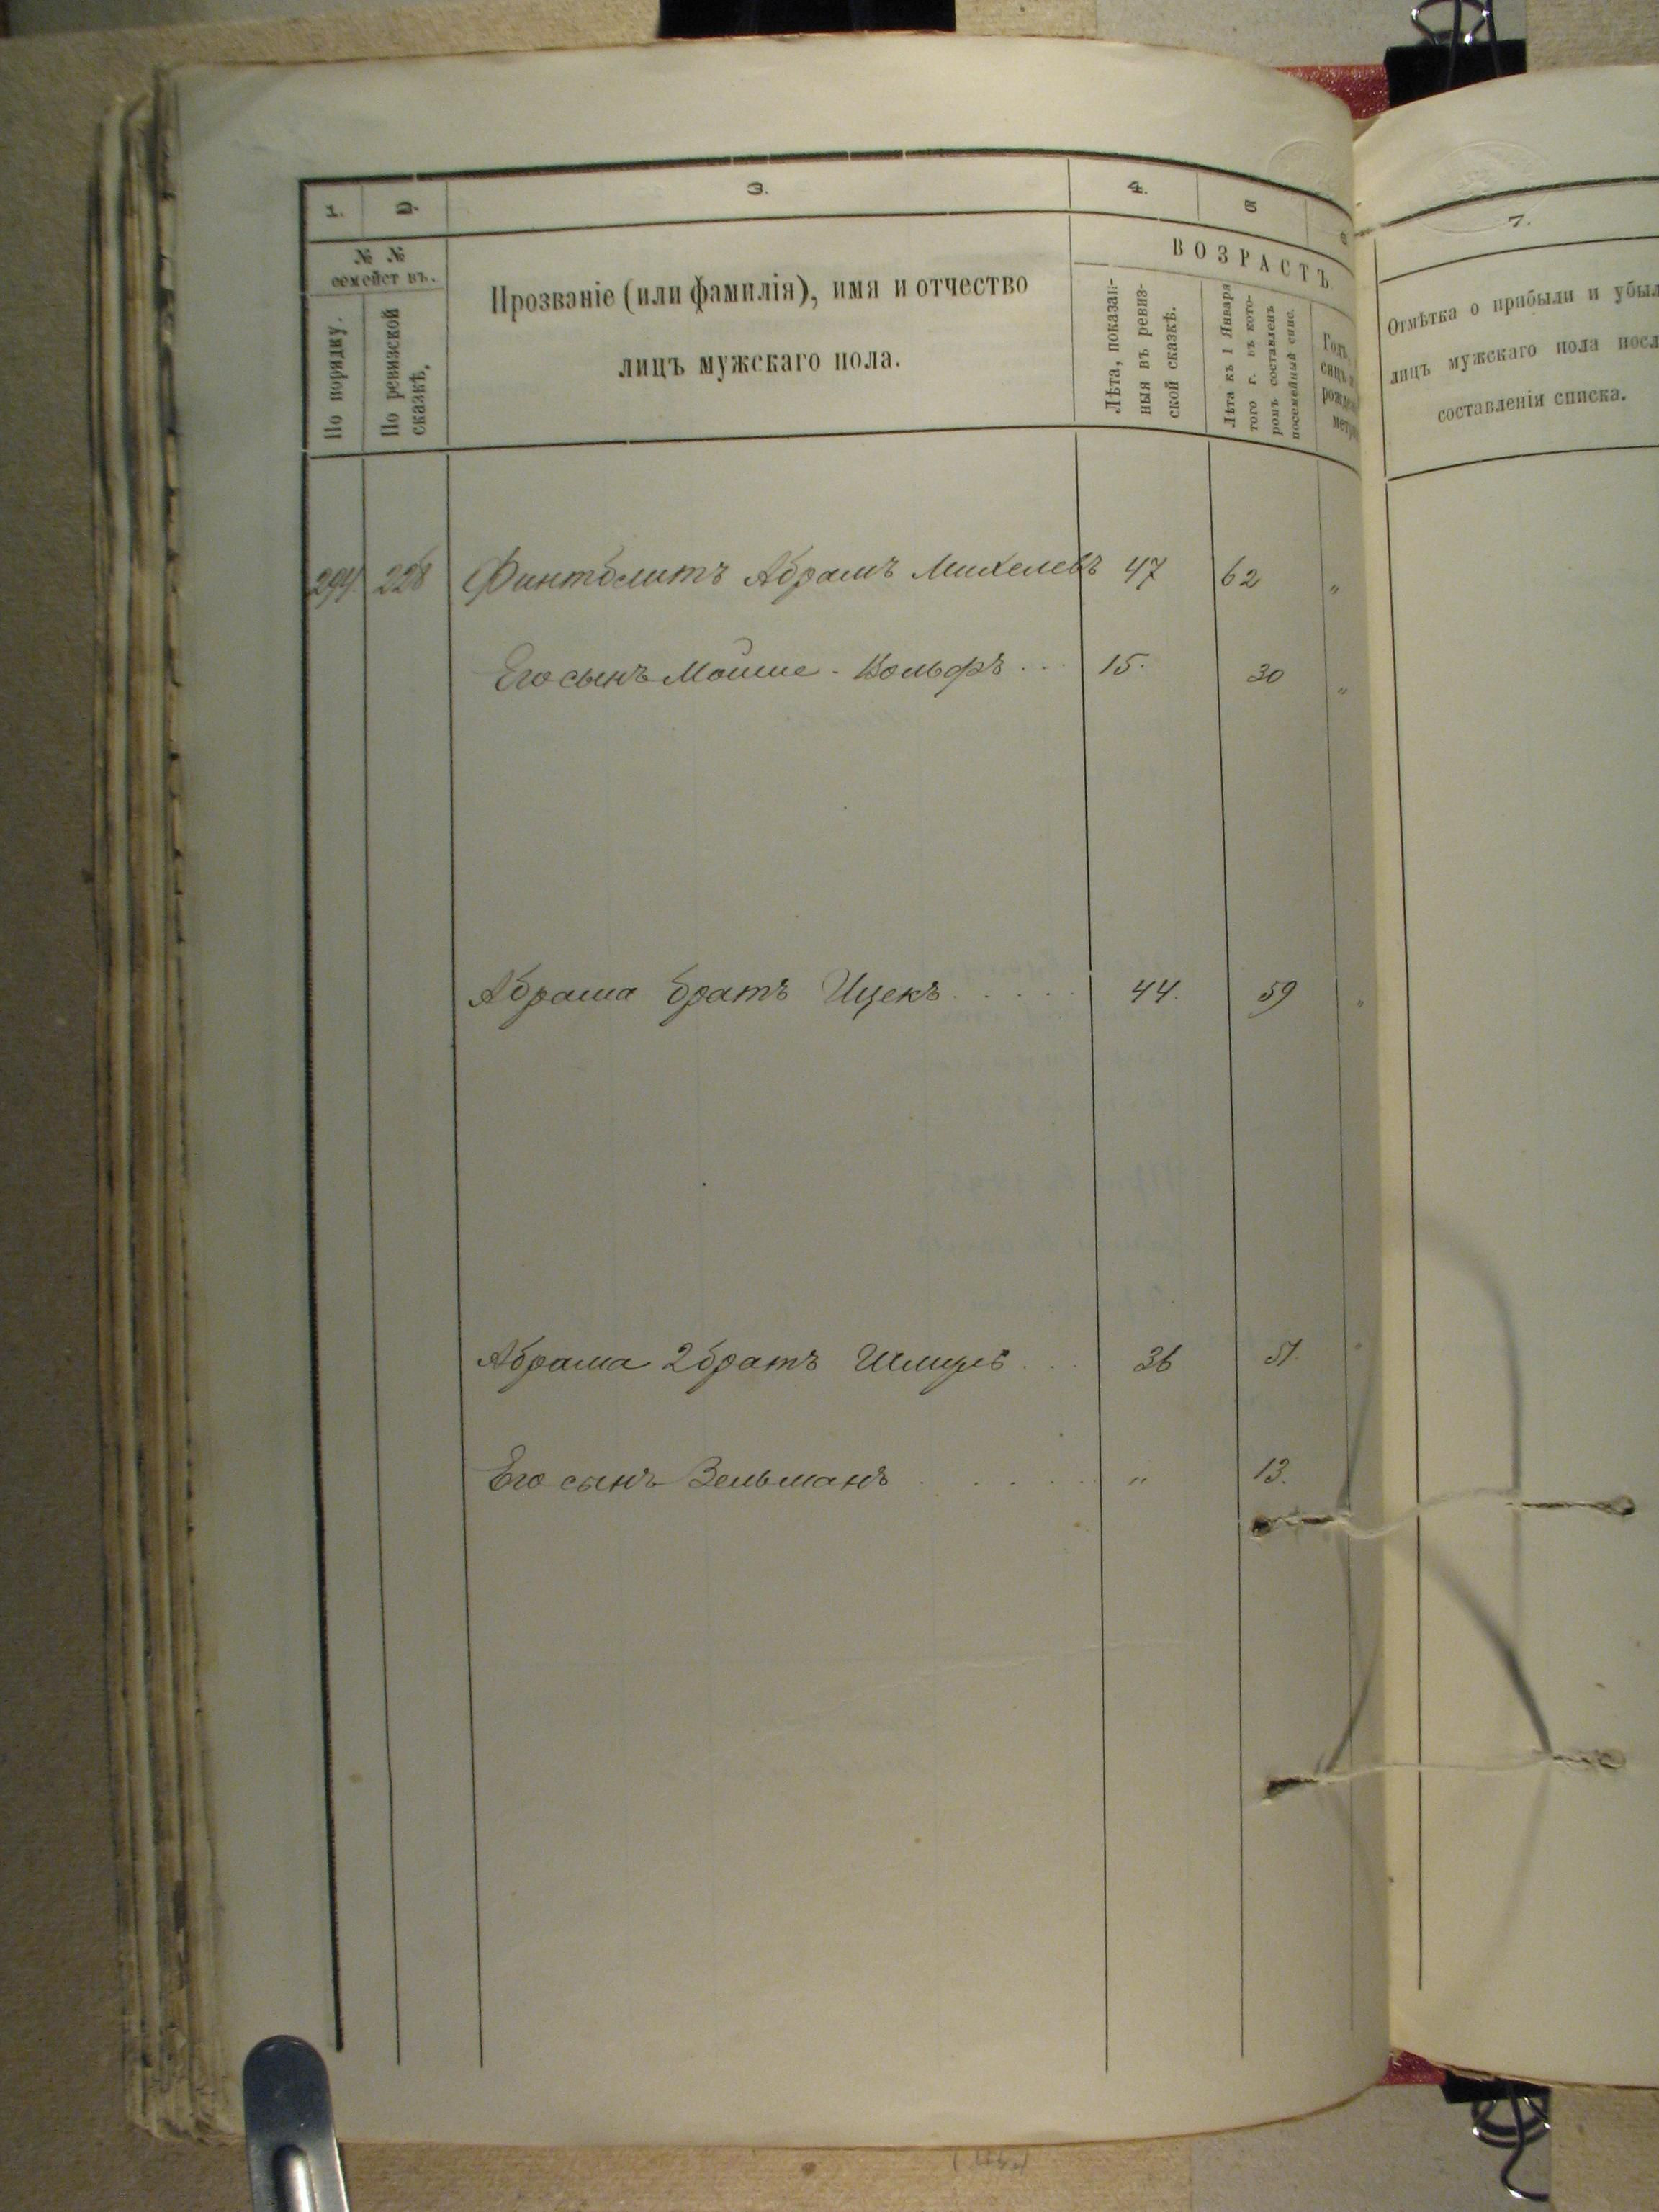 1.
2.
3.
4.
5
6
№ №
семействъ.
По порядку.
По ревизской
сказкѣ.
Прозваніе (или фамилія), имя и отчество
лицъ мужскаго пола.
ВОЗРАСТЪ.
Лѣта, показан-
ныя въ ревиз-
ской сказкѣ.
Лѣта къ 1 Января
того г. въ кото-
ромъ составленъ
посемейный спис.
Годъ,
рожден
метри
294 228 Финтблитъ Абрамъ Михелевъ 47 62 "
Его сынъ Мошше-Вольфъ ... 15. 30 "
Абрама братъ Ицекъ ..... 44. 59 "
Абрама 2 братъ Шлиомъ ... 36 51. "
Его сынъ Зельманъ ..... " 13.
7.
Отмѣтка о прибыли и убыл
лицъ мужскаго пола посл
составленія списка.